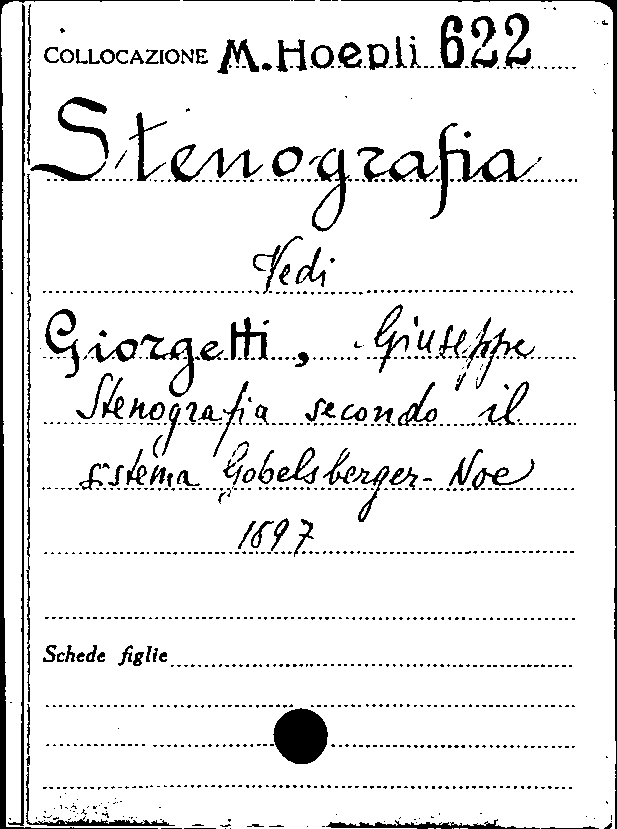 COLLOCAZIONE M. Hoepli 622
Stenografia
Vedi
Giorgetti, Giuseppe
Stenografia secondo il
sistema Gobelsberger-Noe
1897
Schede figlie